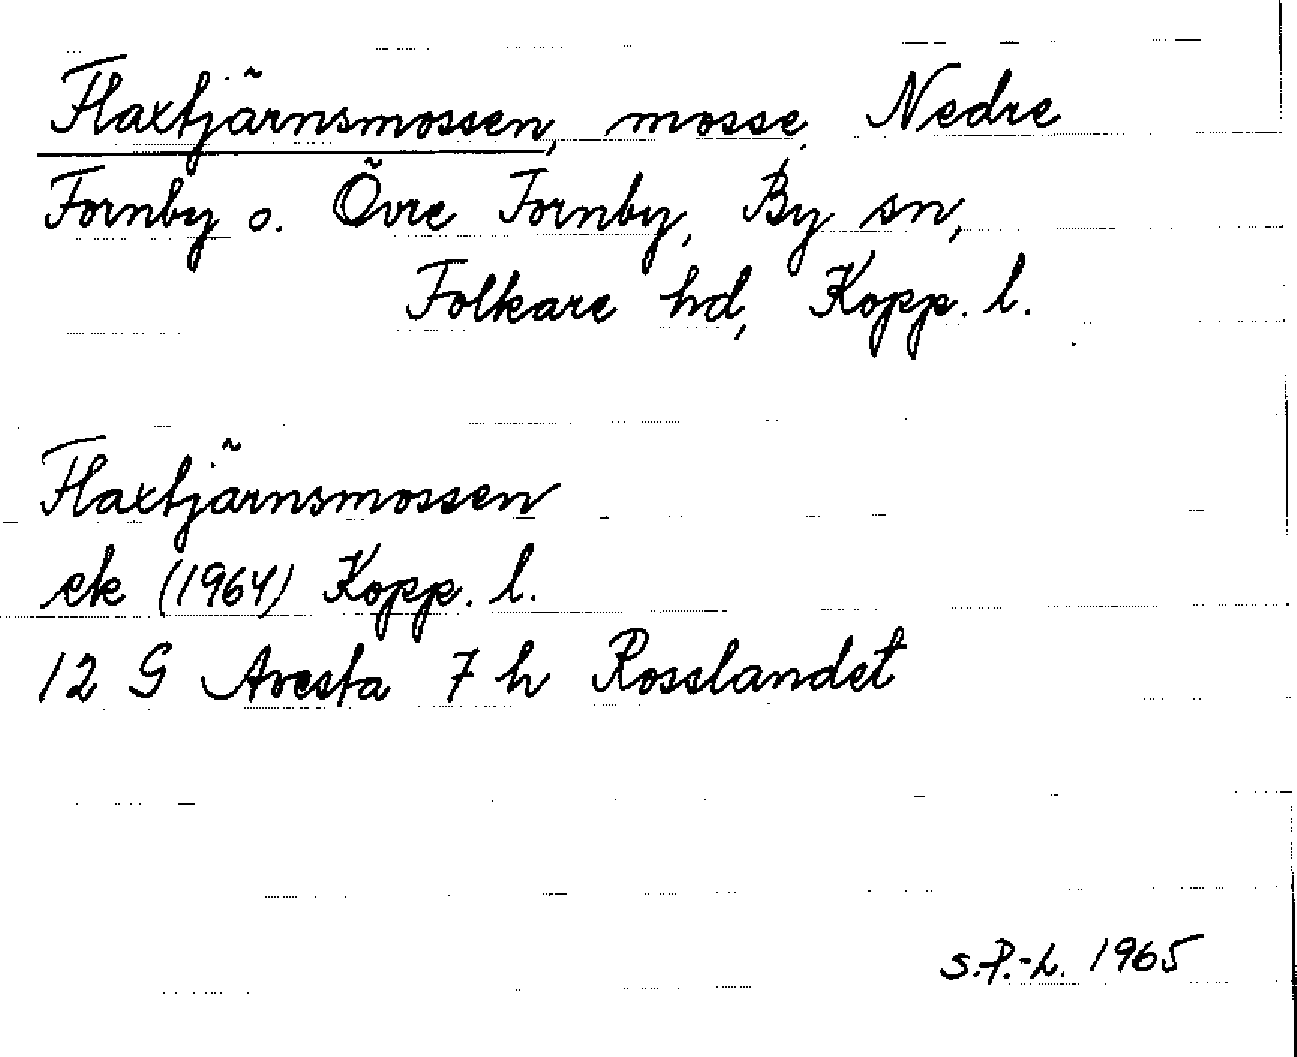 Flaxtjärnsmossen, mosse, Nedre
Fornby o. Övre Fornby, By sn,
Folkare hd, Kopp. l.
Flaxtjärnsmossen
ek (1964) Kopp. l.
12 G Avesta 7 h Rosslandet
S.P.-L. 1965